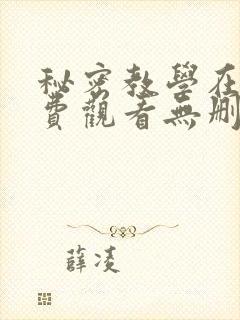 秘密教學在
費觀看無刪
薛凌